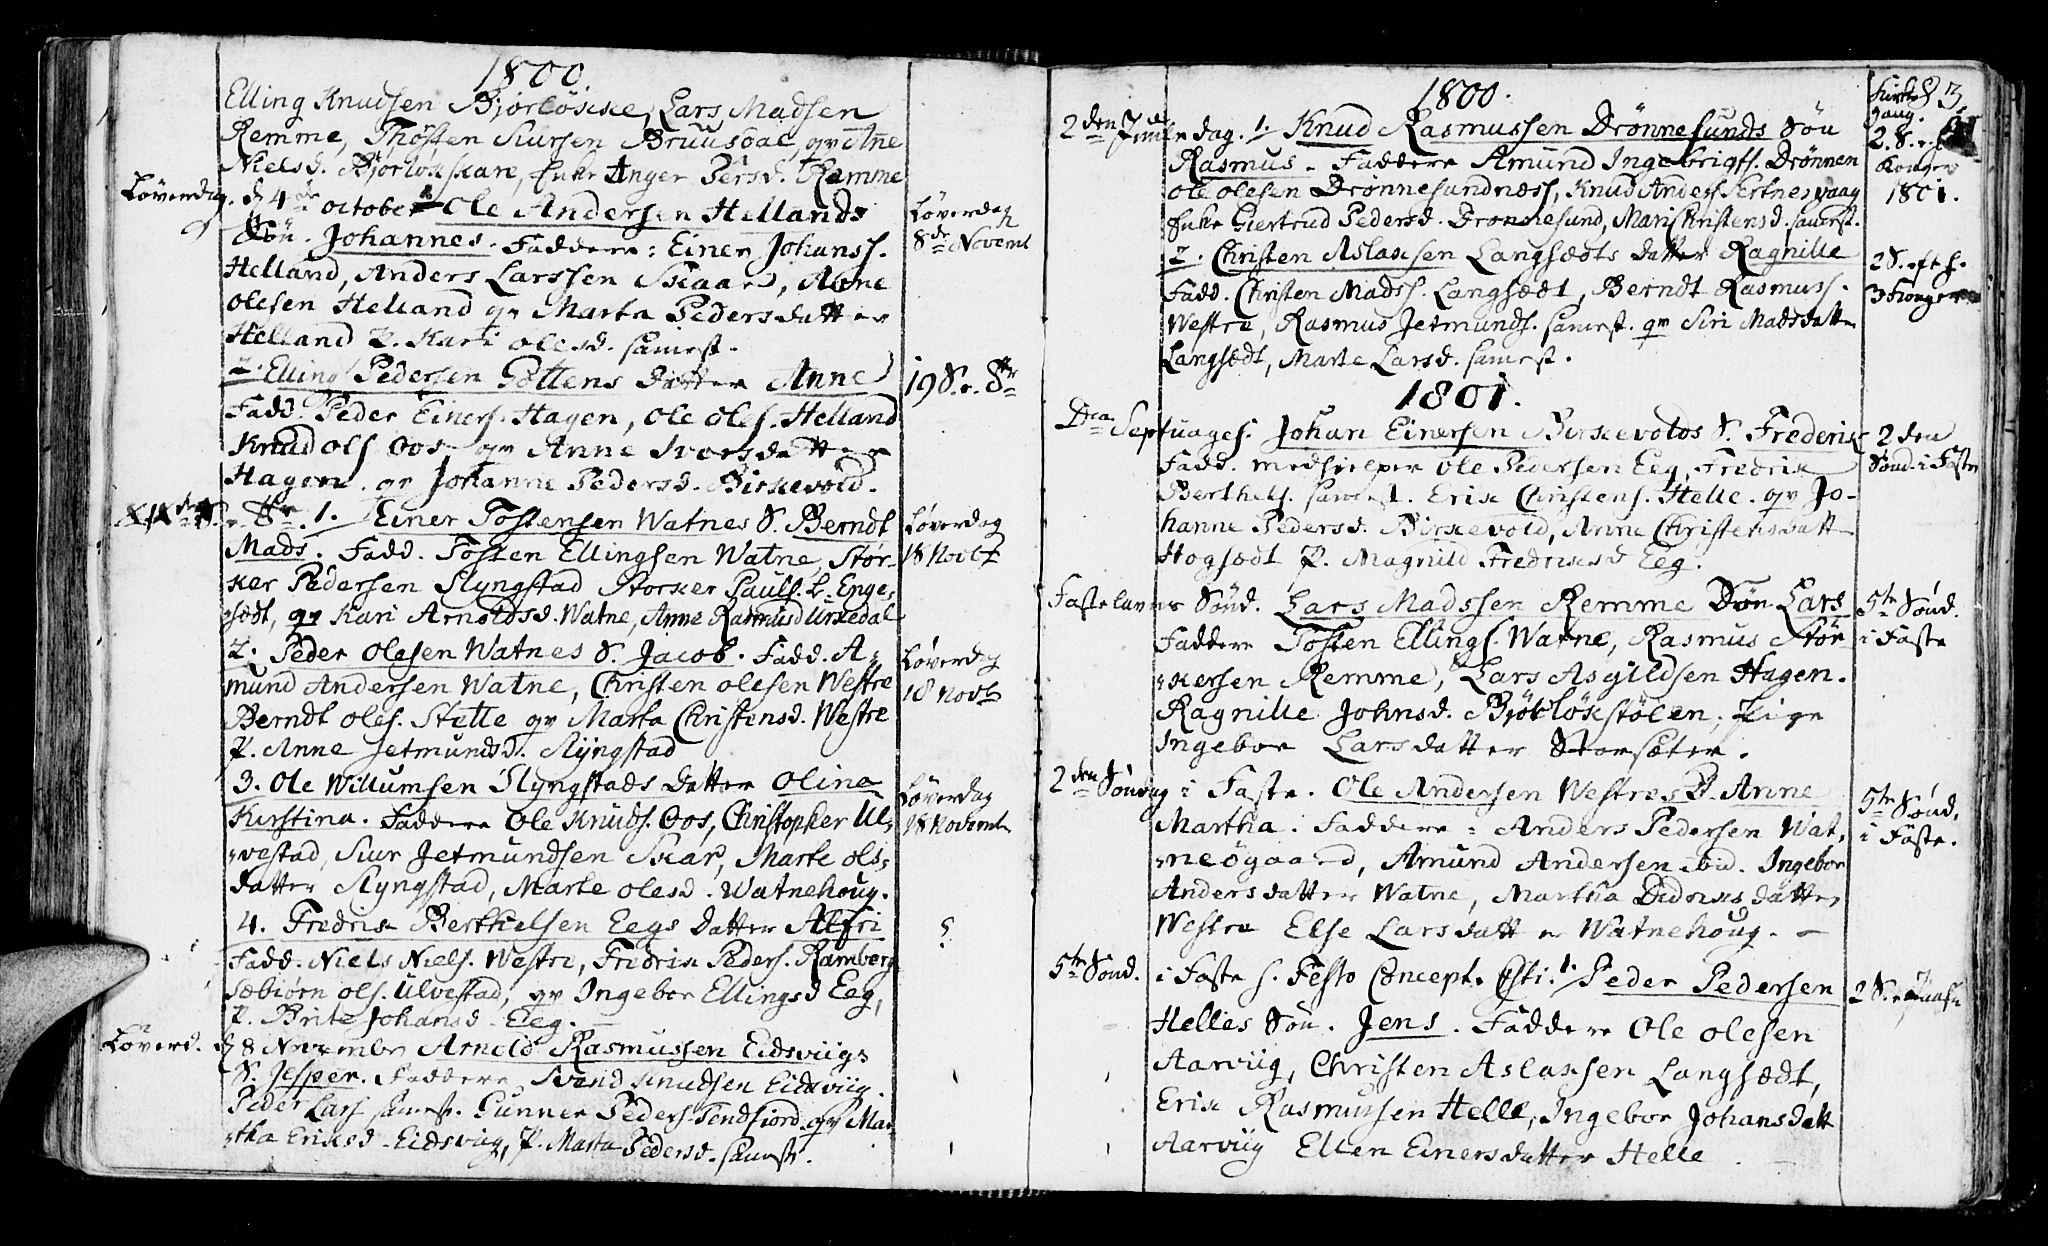 1800.
Elling Knudsen Bjørløkke, Lars Madsen
Remme, Thosten Siursen Bruusdal, qv Ane
Nielsd. Bjørløkskare, Enke Anger Persd. Remme
Løverdag. d 4de October Ole Andersen Hellands
Søn. Johannes. Faddere: Einer Johanss.
Helland, Anders Larssen Skaar, Arne
Olesen Helland qv Marta Pedersdatter
Helland P. Kari Olesd. samest.
2. Elling Pedersen Gottens datter Anne
Fadd. Peder Einers. Hagen, Ole Oles. Helland
Knud Ols Oos. qv Anne Iversdatter
Hagen. qv Johanne Pedersd. Birkevold.
1. Einer Tostensen Watnes S. Berndt
Mads. Fadd. Tosten Ellingsen Watne, Stor-
ker Pedersen Slyngstad Storker Pauls. L. Enge-
sædt, qv Kari Arnoldsd. Watne, Anne Rasmusd Urkedal
2. Peder Olesen Watnes S. Jacob. Fadd. A-
mund Andersen Watne, Christen Olesen Westre
Berndt Oles. Stette qv Marta Christensd. Westre
P. Anne Jetmundsd. Slyngstad
3. Ole Willumsen Slyngstads datter Olina
Kirstina. Faddere Ole Knuds. Oos, Christopher Ul-
vestad, Siur Jetmundsen Skar, Marte Ols-
datter Slyngstad, Marte Olesd. Watnehoug.
4. Fredrik Berthelsen Eegs datter Alfri
Fadd. Niels Niels. Westre, Fredrik Peders. Ramberg
Sæbiørn Ols. Ulvestad, qv Ingebor Ellingsd Eeg,
P. Brite Johansd. Eeg.
Løverd. d 8 November Arnold Rasmussen Eidsviigs
S. Jesper. Faddere Svend Knudsen Eidsviig.
Peder Lars samest. Gunner Peders Tendfiord. qv Mar-
tha Eriksd. Eidsviig, P. Marta Pedersd. samest.
Løverdag
8de Novemt
19 S. e. Str
Løverdag
18 Novbt
Løverdag
18 Novb
Løverdag
18 Novemt
1800.
2den Juuledag. 1. Knud Rasmussen Drønnesunds Søn
Rasmus. Faddere Amund Ingebrigts. Drønnen
Ole Olesen Drønnesundnæss, Knud Anders Kertnesvaag
Enke Giertrud Pedersd. Drønnesund, Mari Christensd. samest.
2. Christen Aslaksen Langsædts datter Ragnille
Fadd. Christen Madss. Langsædt, Berndt Rasmuss.
Westre, Rasmus Jetmunds. samest. qv Siri Madsdatter
Langsædt, Marte Larsd. samest.
1801.
Dca Septuages. Johan Einersen Birkevolds S. Frederik
Fadd. medhielper Ole Pedersen Eeg, Fredrik
Berthels. samest. Erik Christens. Helle. qv Jo-
hanne Pedersd. Birkevold, Anne Christensdatt
Hogsædt P. Magnild Fredriksd Eeg.
Fastelavns Sönd. Lars Madssen Remme Søn Lars
Faddere Tosten Ellings. Watne, Rasmus Stor-
kersen Remme, Lars Asgildsen Hagen.
Ragnille Johnsd. Bjørløkstølen, Pige
Ingebor Larsdatter Storsæter.
2den Søndag i Faste. Ole Andersen Westres D. Anne
Martha. Faddere: Anders Pedersen Wat-
neøgaard, Amund Andersen ibid. Ingebor
Andersdatter Watne, Martha Didriksdatter
Westre Else Larsdatter Watnehoug.
5te Sönd. i Faste s. Festo Concept. Xsti. 1. Peder Pedersen
Helles Søn. Jens. Faddere Ole Olesen
Aarviig, Christen Aslaksen Langsædt,
Erik Rasmussen Helle, Ingebor Johansdatt
Aarviig Ellen Einersdatter Helle
83
1801.
2 S. eft h.
3 Konger
2 den
Sönd. i Faste
5te Sönd.
i Faste
5te Sönd.
i Faste.
2 S. e. Paaske